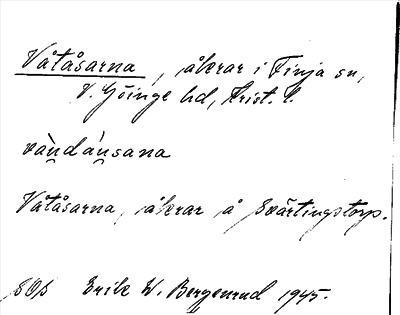 Våtåsarna, åkrar i Finja sn,
V. Göinge hd, Krist. l.
Våtåsarna, åkrar å Svärtingstorp.
Erik W. Bergenrud 1945.